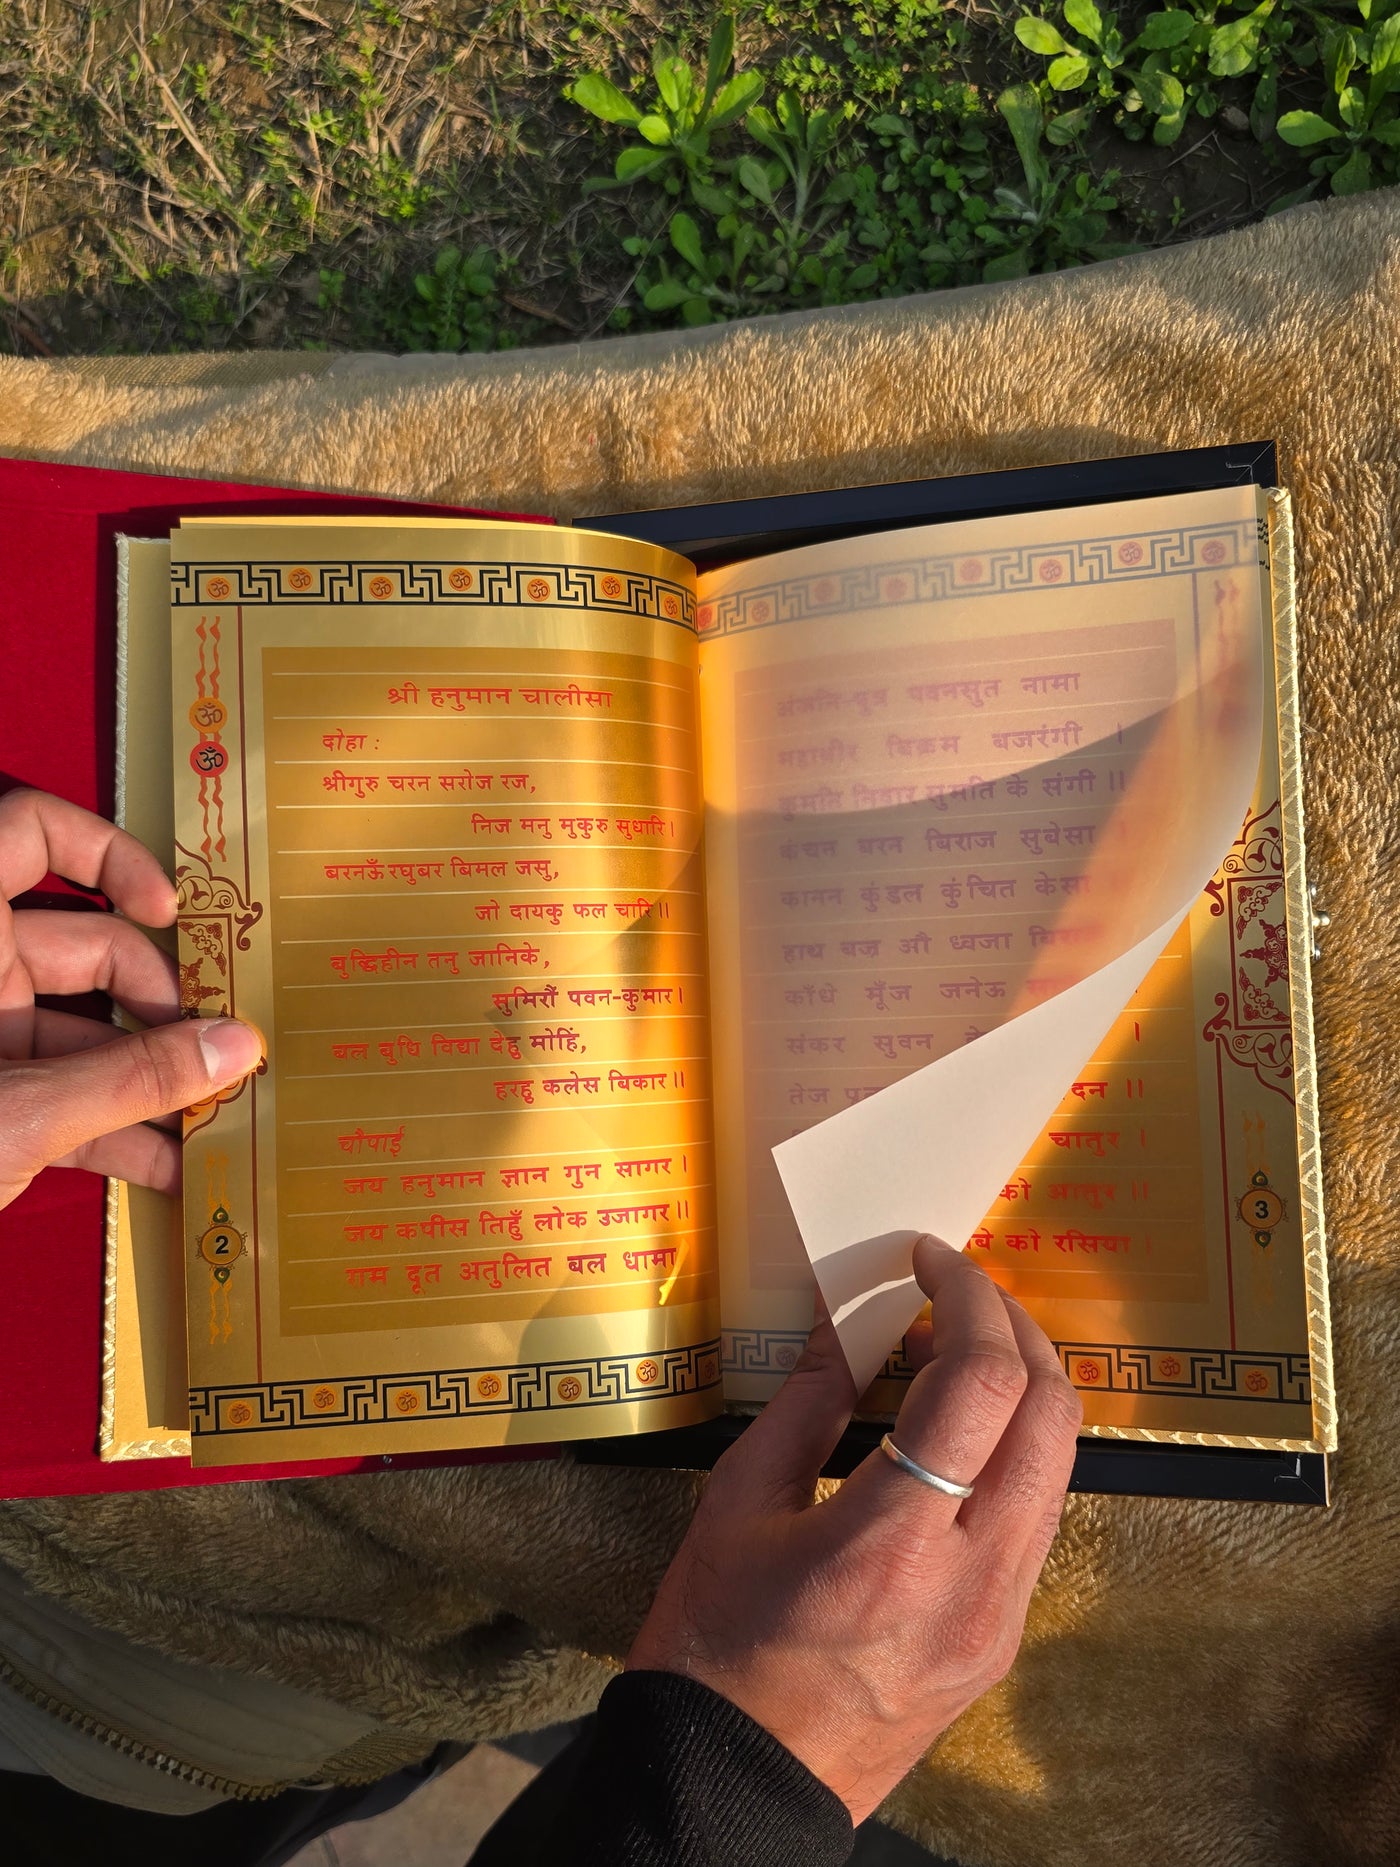 श्री हनुमान चालीसा
दोहा :
श्रीगुरु चरन सरोज रज,
निज मनु मुकुरु सुधारि।
बरनऊँ रघुबर बिमल जसु,
जो दायकु फल चारि॥
बुद्धिहीन तनु जानिके,
सुमिरौं पवन-कुमार।
बल बुधि विद्या देहु मोहिं,
हरहु कलेस बिकार॥
चौपाई
जय हनुमान ज्ञान गुन सागर।
जय कपीस तिहुँ लोक उजागर॥
राम दूत अतुलित बल धामा
2
अंजनि-पुत्र पवनसुत नामा
महाबीर बिक्रम बजरंगी ।
कुमति निवार सुमति के संगी ॥
कंचन बरन बिराज सुबेसा ।
कानन कुंडल कुंचित केसा
हाथ बज्र औ ध्वजा
काँधे मूँज जनेऊ ।
संकर सुवन ।
तेज ॥
चातुर ।
को आतुर ॥
को रसिया ।
3